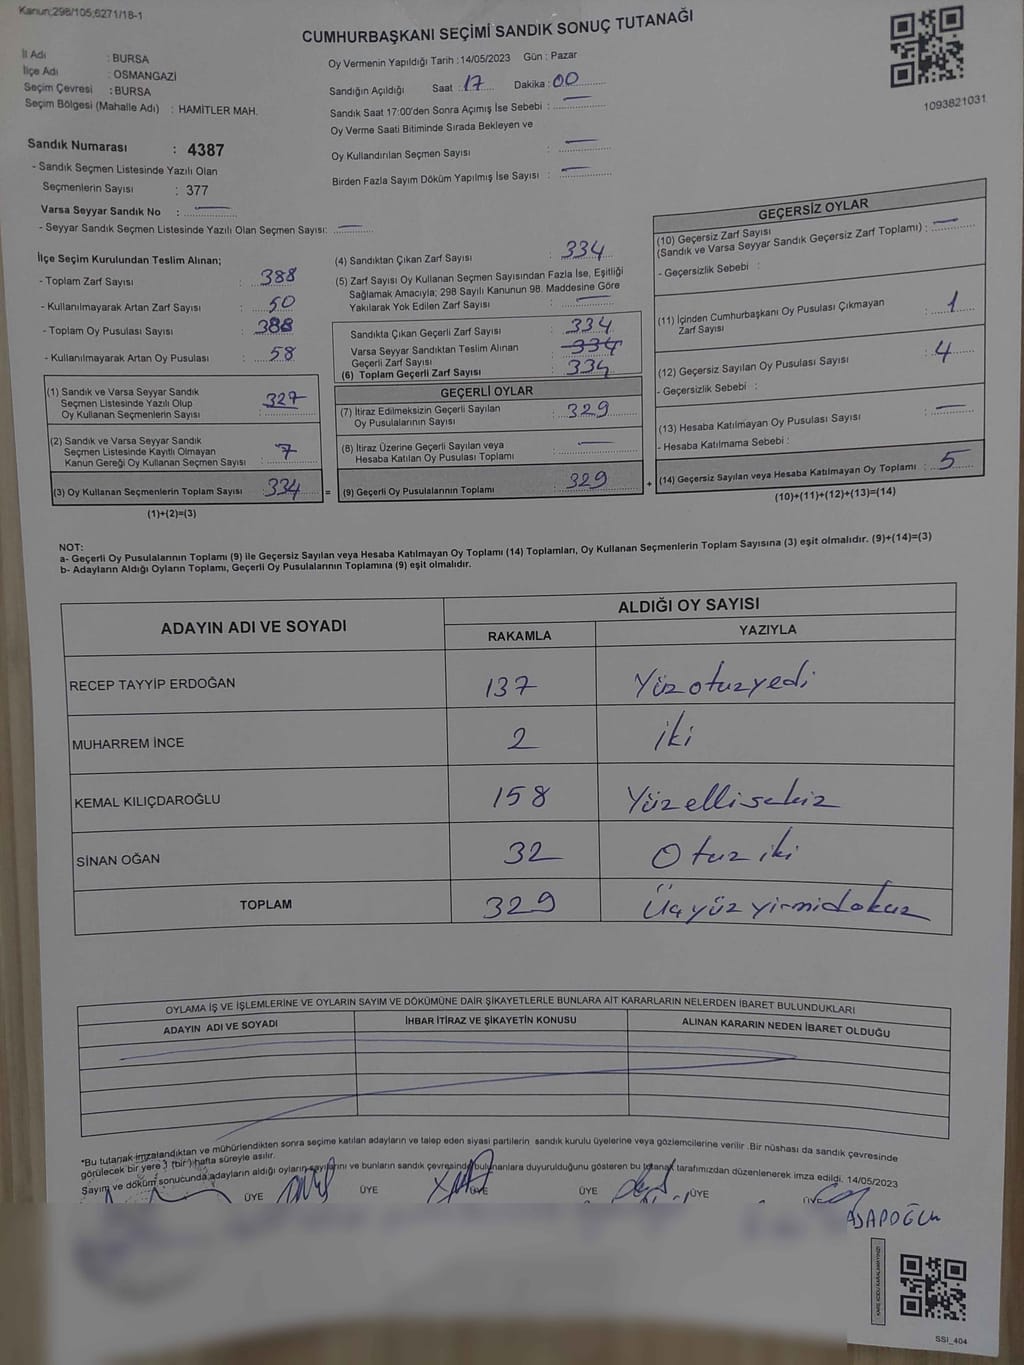 Kanun;298/105;6271/18-1
CUMHURBAŞKANI SEÇİMİ SANDIK SONUÇ TUTANAĞI
İl Adı : BURSA
İlçe Adı : OSMANGAZİ
Seçim Çevresi : BURSA
Seçim Bölgesi (Mahalle Adı) : HAMİTLER MAH.
Oy Vermenin Yapıldığı Tarih :14/05/2023 Gün : Pazar
Sandığın Açıldığı Saat : 17 Dakika : 00
Sandık Saat 17:00'den Sonra Açımış İse Sebebi : —
Oy Verme Saati Bitiminde Sırada Bekleyen ve
Oy Kullandırılan Seçmen Sayısı : —
Birden Fazla Sayım Döküm Yapılmış İse Sayısı : —
1093821031
Sandık Numarası : 4387
- Sandık Seçmen Listesinde Yazılı Olan
Seçmenlerin Sayısı : 377
Varsa Seyyar Sandık No : —
- Seyyar Sandık Seçmen Listesinde Yazılı Olan Seçmen Sayısı: —
İlçe Seçim Kurulundan Teslim Alınan;
- Toplam Zarf Sayısı : 388
- Kullanılmayarak Artan Zarf Sayısı : 50
- Toplam Oy Pusulası Sayısı : 388
- Kullanılmayarak Artan Oy Pusulası : 58
(1) Sandık ve Varsa Seyyar Sandık
Seçmen Listesinde Yazılı Olup
Oy Kullanan Seçmenlerin Sayısı : 327
(2) Sandık ve Varsa Seyyar Sandık
Seçmen Listesinde Kayıtlı Olmayan
Kanun Gereği Oy Kullanan Seçmen Sayısı : 7
(3) Oy Kullanan Seçmenlerin Toplam Sayısı : 334 =
(1)+(2)=(3)
(4) Sandıktan Çıkan Zarf Sayısı : 334
(5) Zarf Sayısı Oy Kullanan Seçmen Sayısından Fazla İse, Eşitliği
Sağlamak Amacıyla; 298 Sayılı Kanunun 98. Maddesine Göre
Yakılarak Yok Edilen Zarf Sayısı : —
Sandıkta Çıkan Geçerli Zarf Sayısı : 334
Varsa Seyyar Sandıktan Teslim Alınan
Geçerli Zarf Sayısı : 334
(6) Toplam Geçerli Zarf Sayısı : 334
GEÇERLİ OYLAR
(7) İtiraz Edilmeksizin Geçerli Sayılan
Oy Pusulalarının Sayısı : 329
(8) İtiraz Üzerine Geçerli Sayılan veya
Hesaba Katılan Oy Pusulası Toplamı : —
(9) Geçerli Oy Pusulalarının Toplamı : 329 +
GEÇERSİZ OYLAR
(10) Geçersiz Zarf Sayısı
(Sandık ve Varsa Seyyar Sandık Geçersiz Zarf Toplamı) : —
- Geçersizlik Sebebi :
(11) İçinden Cumhurbaşkanı Oy Pusulası Çıkmayan
Zarf Sayısı : 1
(12) Geçersiz Sayılan Oy Pusulası Sayısı : 4
- Geçersizlik Sebebi :
(13) Hesaba Katılmayan Oy Pusulası Sayısı : —
- Hesaba Katılmama Sebebi :
(14) Geçersiz Sayılan veya Hesaba Katılmayan Oy Toplamı : 5
(10)+(11)+(12)+(13)=(14)
NOT:
a- Geçerli Oy Pusulalarının Toplamı (9) ile Geçersiz Sayılan veya Hesaba Katılmayan Oy Toplamı (14) Toplamları, Oy Kullanan Seçmenlerin Toplam Sayısına (3) eşit olmalıdır. (9)+(14)=(3)
b- Adayların Aldığı Oyların Toplamı, Geçerli Oy Pusulalarının Toplamına (9) eşit olmalıdır.
ADAYIN ADI VE SOYADI ALDIĞI OY SAYISI
RAKAMLA YAZIYLA
RECEP TAYYİP ERDOĞAN 137 Yüzotuzyedi
MUHARREM İNCE 2 iki
KEMAL KILIÇDAROĞLU 158 Yüzellisekiz
SİNAN OĞAN 32 Otuziki
TOPLAM 329 Üçyüzyirmidokuz
OYLAMA İŞ VE İŞLEMLERİNE VE OYLARIN SAYIM VE DÖKÜMÜNE DAİR ŞİKAYETLERLE BUNLARA AİT KARARLARIN NELERDEN İBARET BULUNDUKLARI
ADAYIN ADI VE SOYADI İHBAR İTİRAZ VE ŞİKAYETİN KONUSU ALINAN KARARIN NEDEN İBARET OLDUĞU
*Bu tutanak imzalandıktan ve mühürlendikten sonra seçime katılan adayların ve talep eden siyasi partilerin sandık kurulu üyelerine veya gözlemcilerine verilir .Bir nüshası da sandık çevresinde
görülecek bir yere 1 (bir) hafta süreyle asılır.
Sayım ve döküm sonucunda adayların aldığı oyların sayılarını ve bunların sandık çevresinde bulunanlara duyurulduğunu gösteren bu tutanak tarafımızdan düzenlenerek imza edildi. 14/05/2023
ÜYE ÜYE ÜYE ÜYE ÜYE
SSI_404